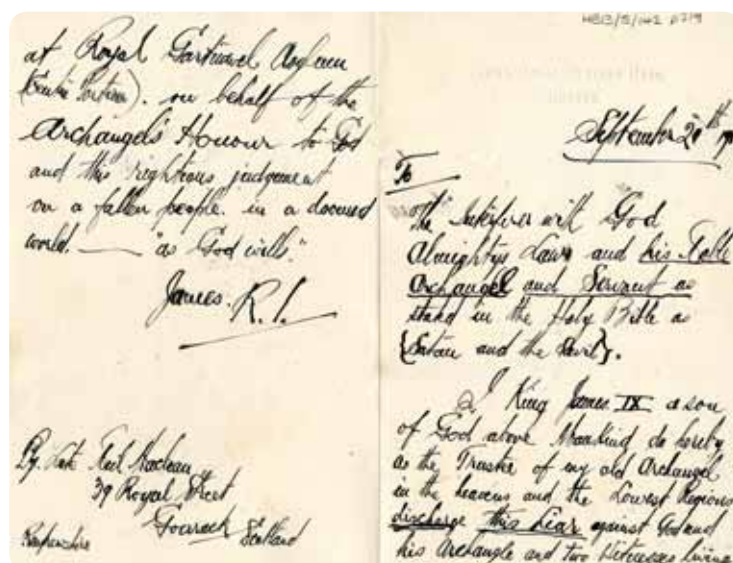 at Royal Gartnavel Asylum
on behalf of the
Archangel's Honour to God
and this rightious judgement
on a fallen people. in a doomed
world. — "as God wills."
James. R.I.
39 Royal Street
Gourock Scotland
Renfrewshire
HB13/5/142
September 20th
To
The with God
Almightys Laws and his
Archangel and Servant as
stand in the Holy Bible as
{Satan and the Devil}.
I King James IX a son
of God above Mankind do hereby
as the Trustee of my old Archangel
in the heavens and the Lowest Regions
discharge this Liar against God and
his Archangle and two Witnesses living